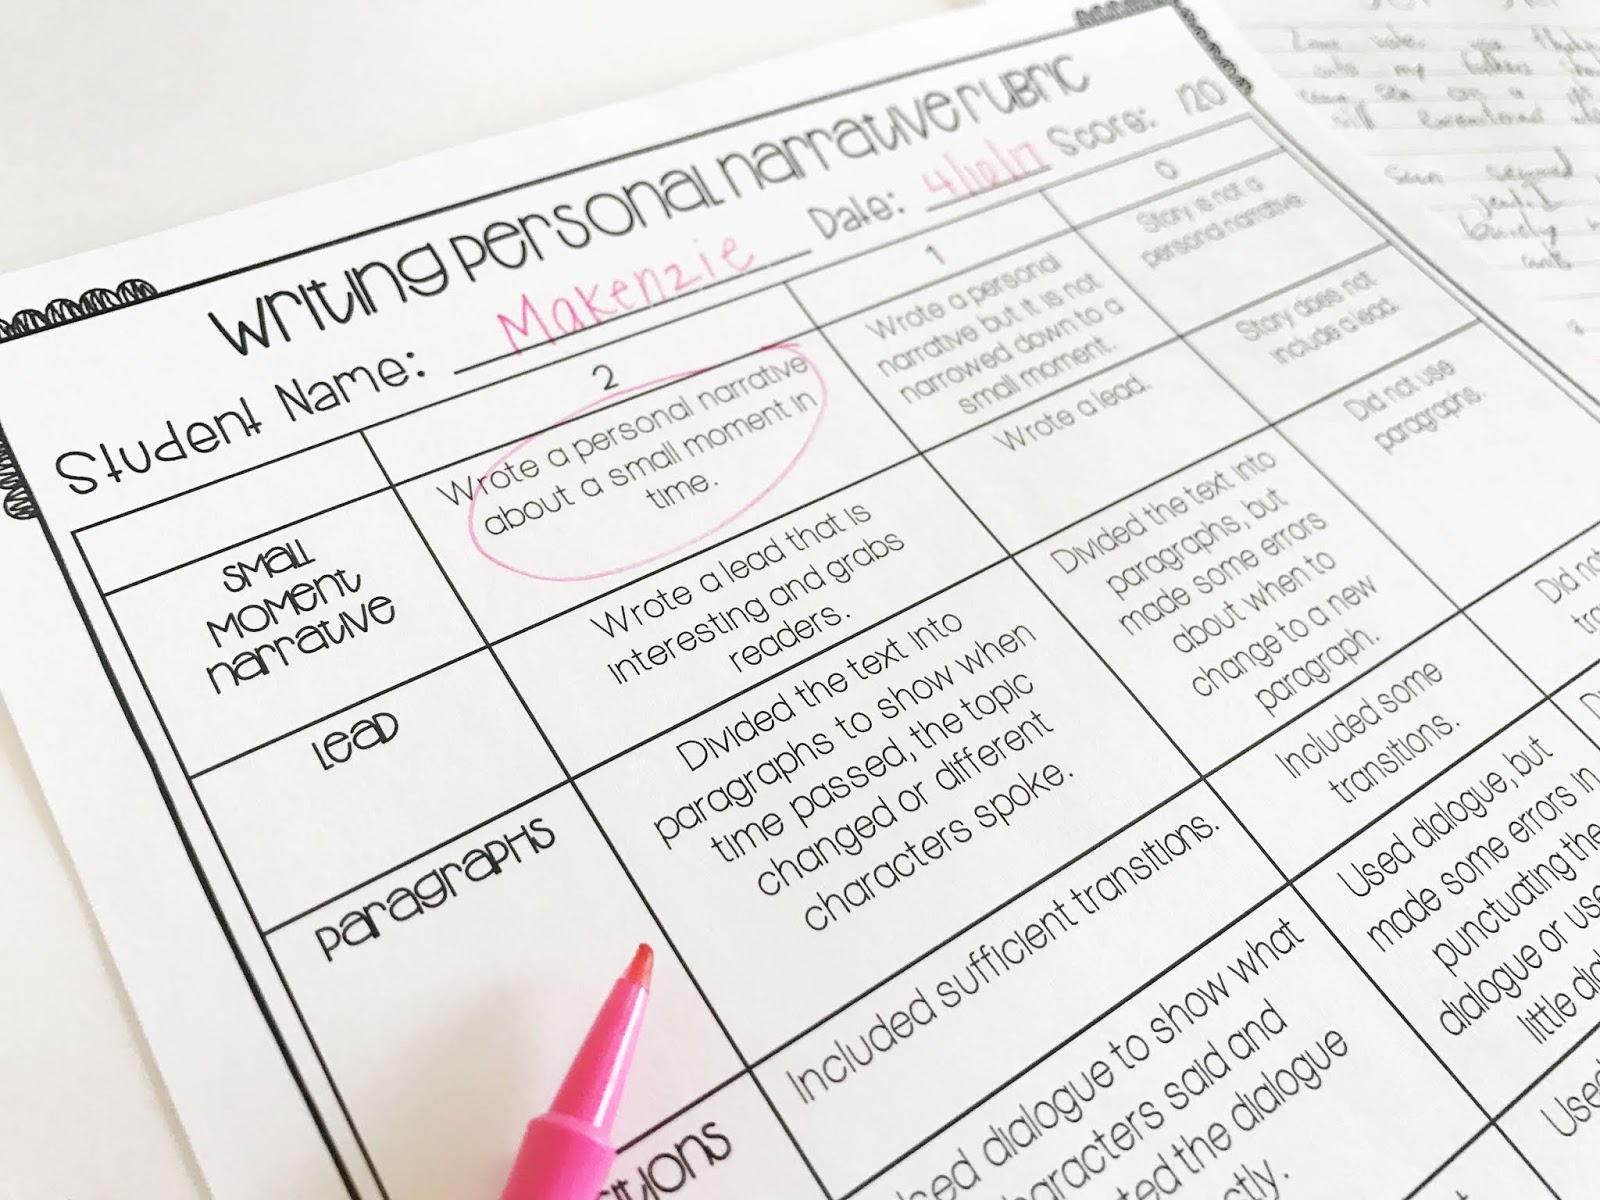 Writing Personal Narrative Rubric
Student Name: Makenzie Date: 4/10/17 Score: /20
2
1
0
Small
Moment
Narrative
Wrote a personal narrative
about a small moment in
time.
Wrote a personal
narrative but it is not
narrowed down to a
small moment.
Story is not a
personal narrative.
Lead
Wrote a lead that is
interesting and grabs
readers.
Wrote a lead.
Story does not
include a lead.
Paragraphs
Divided the text into
paragraphs to show when
time passed, the topic
changed or different
characters spoke.
Divided the text into
paragraphs, but
made some errors
about when to
change to a new
paragraph.
Did not use
paragraphs.
Included sufficient transitions.
Included some
transitions.
Did not
dialogue to show what
said and
the dialogue
Used dialogue, but
made some errors in
punctuating the
dialogue or
little